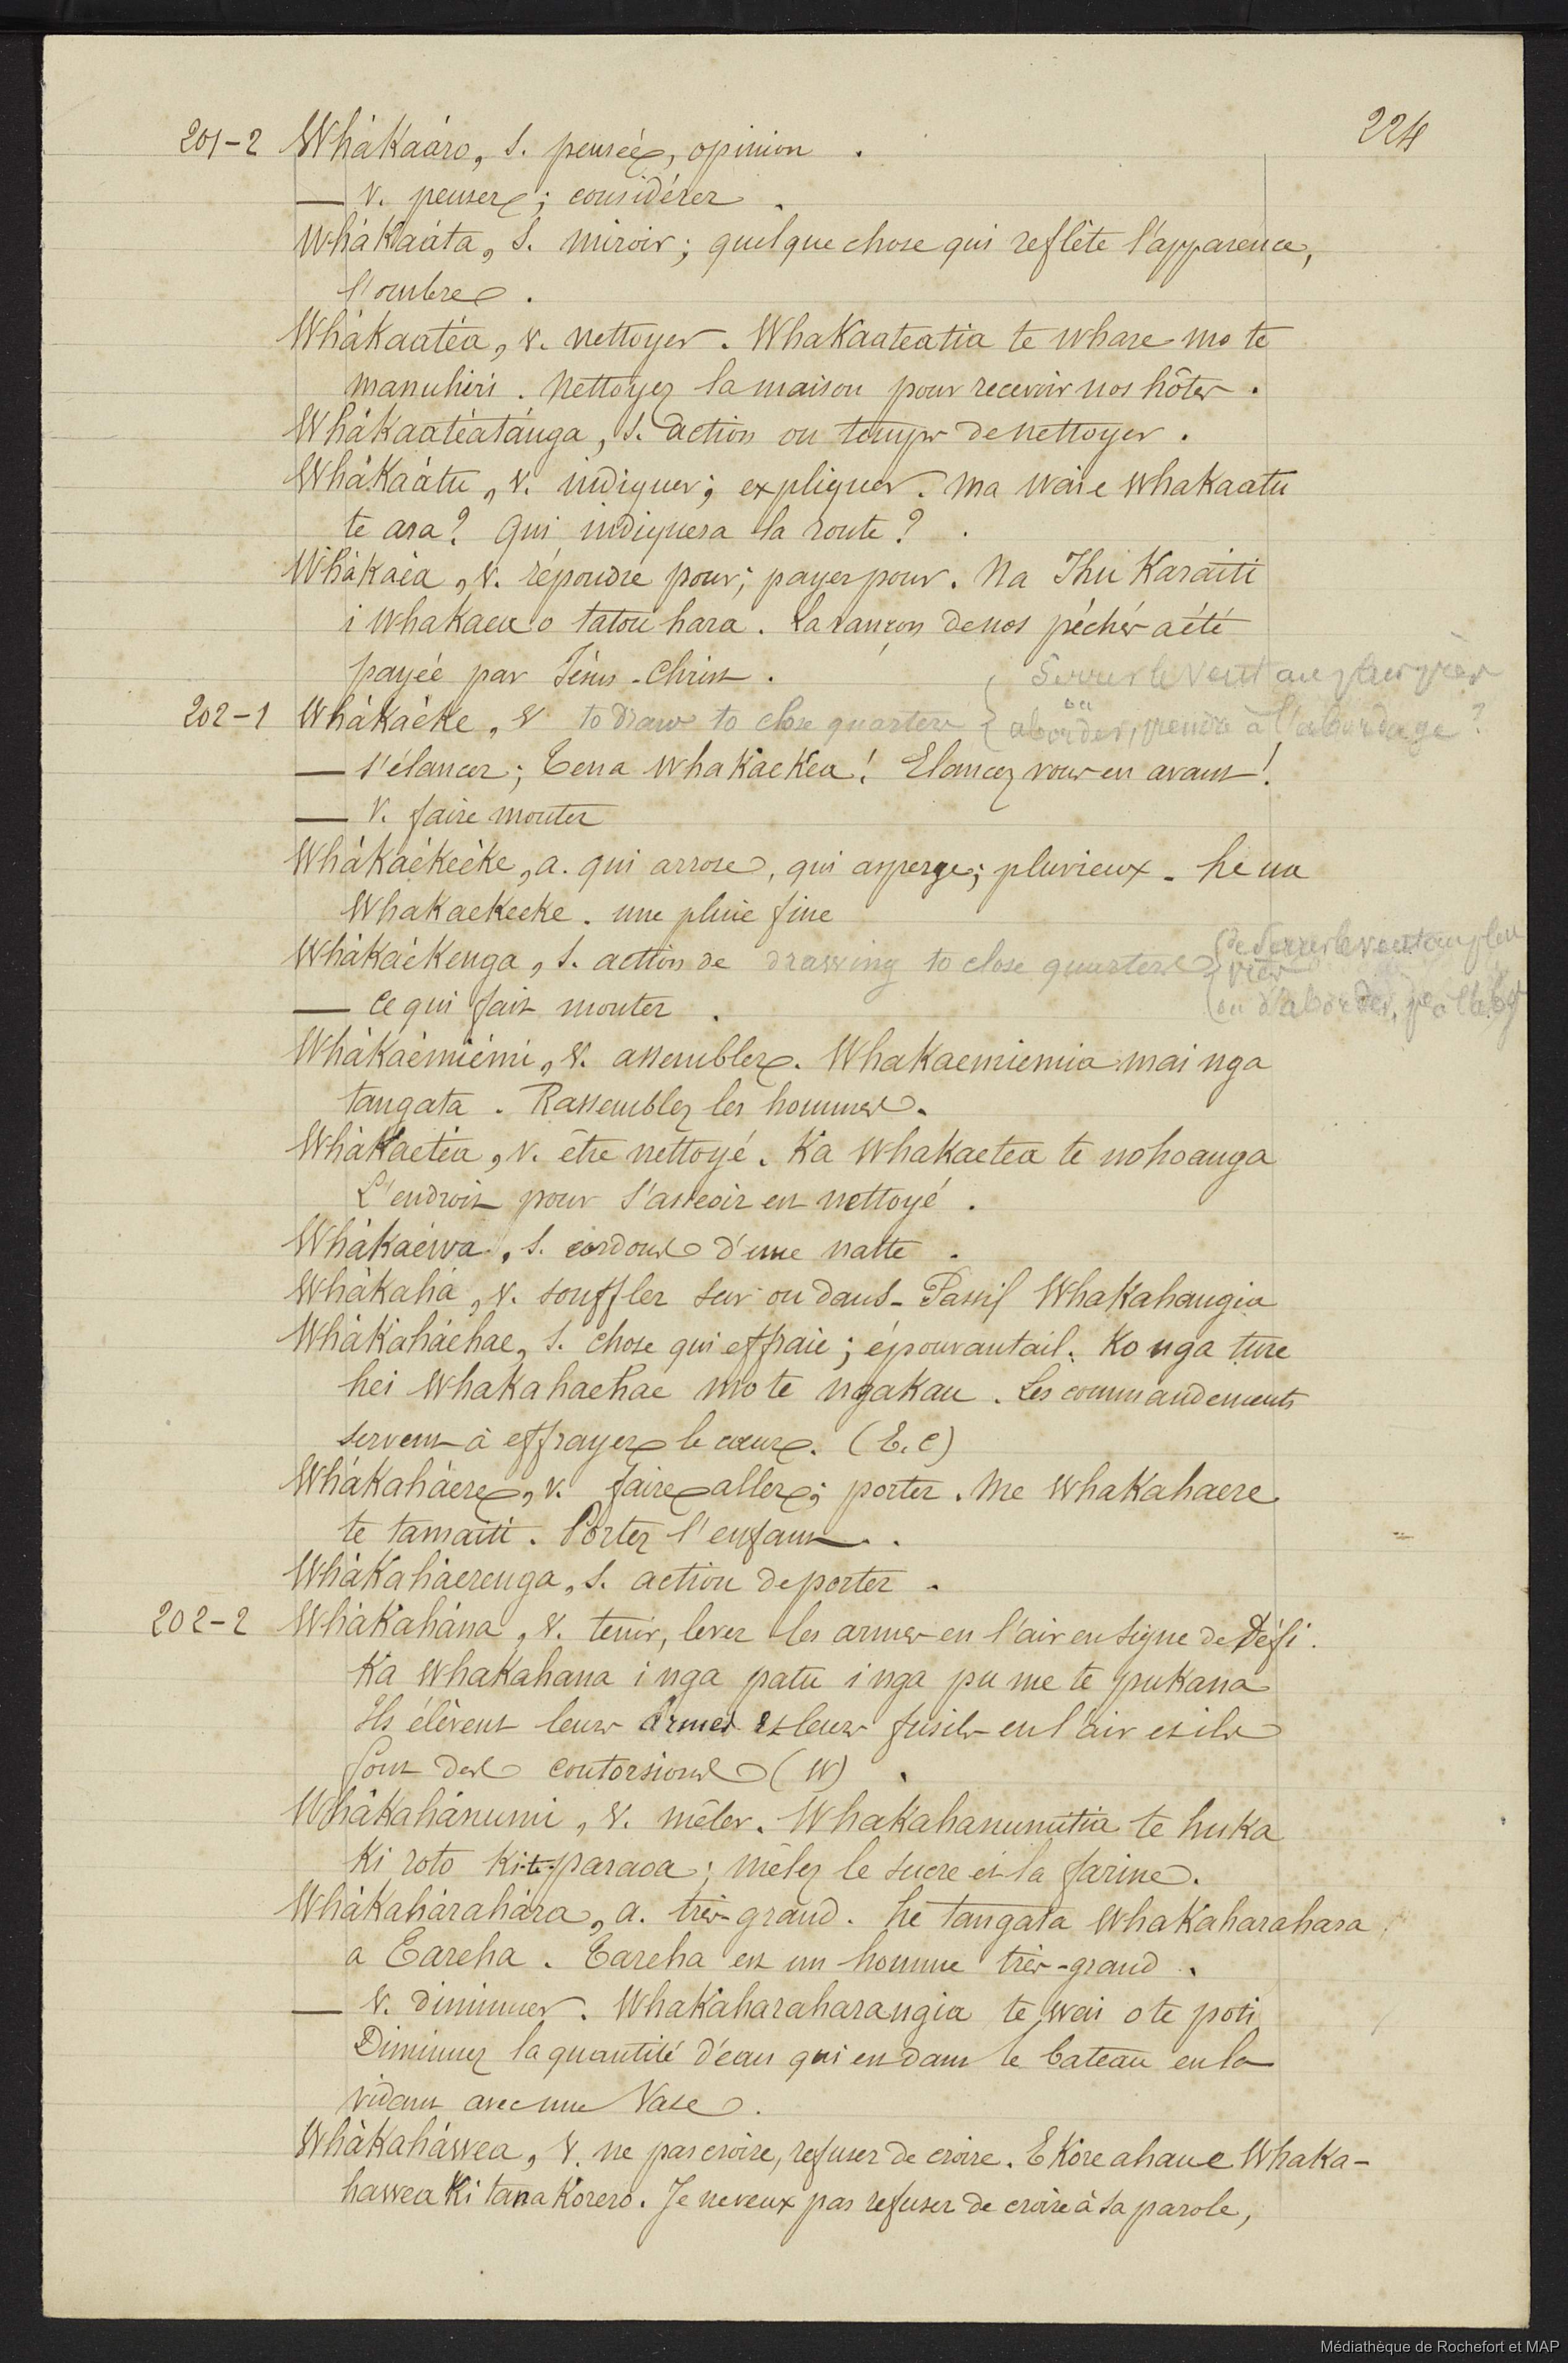 224
201-2 Whákaáro, s. pensée, opinion.
— v. penser; considérer.
Whákaáta, s. miroir; quelque chose qui reflète l'apparence,
l'ombre.
Whákaatéa, v. nettoyer. Whakaateatia te whare mo te
manuhiri. Nettoyez la maison pour recevoir nos hôtes.
Whákaatéatánga, s. action ou temps de nettoyer.
Whákaátu, v. indiquer; expliquer. Ma wai e whakaatu
te ara? Qui indiquera la route?
Whákaéa, v. répondre pour; payer pour. Na Ihu Karaiti
i whakaea o tatou hara. La rançon de nos péchés a été
payée par Jésus-Christ.
Serrer le vent au plus près
ou
202-1 Whákaéke, v to draw to close quarters { aborder, prendre à l'abordage?
— s'élancer; Tena whakaekea! Elancez vous en avant!
— v. faire monter
Whákaékeéke, a. qui arrose, qui asperge; pluvieux. he ua
whakaekeeke. une pluie fine
Whákaékenga, s. action de drawing to close quarters { de serrer le vent au plus
près
— ce qui fait monter. ou d'aborder,
Whákaémiémi, v. assembler. Whakaemiemia mai nga
tangata. Rassemblez les hommes.
Whákaetéa, v. être nettoyé. Ka whakaetea te nohoanga
L'endroit pour s'asseoir est nettoyé.
Whákaéwa, s. cordons d'une natte.
Whákahá, v. souffler sur ou dans - Passif Whakahangia
Whákaháehae, s. chose qui effraie; épouvantail. Ko nga ture
hei whakahaehae mo te ngakau. Les commandements
servent à effrayer le cœur. (E.C)
Whákaháere, v. faire aller; porter. Me whakahaere
te tamaiti. Portez l'enfant.
Whákaháerenga, s. action de porter.
202-2 Whákahána, v. tenir, lever les armes en l'air en signe de Défi.
Ka whakahana i nga patu i nga pu me te pukana
Ils élèvent leurs armes et leurs fusils en l'air et ils
font des contorsions (W)
Whákahánumi, v. mêler. Whakahanumitia te huka
ki roto ki te paraoa; mêlez le sucre et la farine.
Whákahárahára, a. très-grand. he tangata whakaharahara
a Tareha. Tareha est un homme très-grand.
— v. diminuer. Whakaharaharangia te wai o te poti
Diminuez la quantité d'eau qui est dans le bateau en la
vidant avec un vase.
Whákaháwea, v. ne pas croire, refuser de croire. E Kore ahau e whaka-
hawea ki tana Korero. Je ne veux pas refuser de croire à sa parole,
Médiathèque de Rochefort et MAP